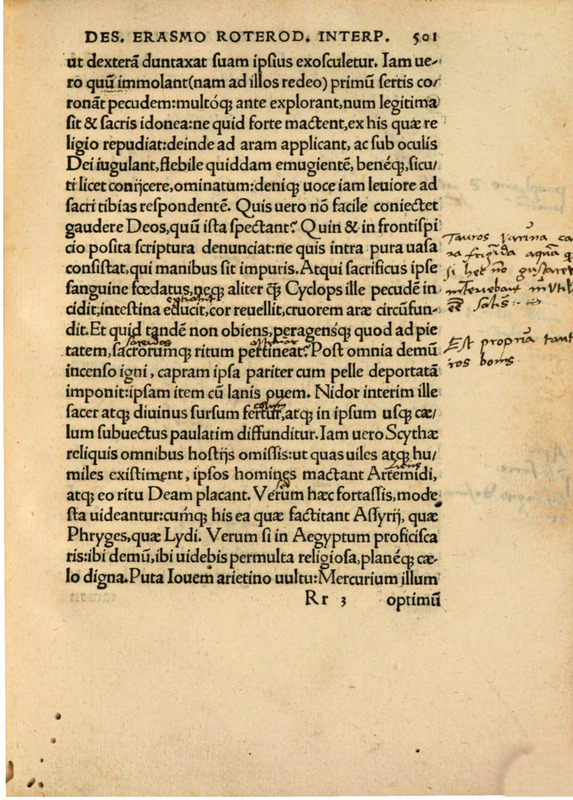 DES. ERASMO ROTEROD. INTERP. 501
ut dexterã duntaxat suam ipsius exosculetur. Iam ue-
ro quũ immolant(nam ad illos redeo) primũ sertis co/
ronãt pecudem:multóq; ante explorant,num legitima
sit & sacris idonea:ne quid forte mactent,ex his quæ re
ligio repudiat:deinde ad aram applicant, ac sub oculis
Dei iugulant,flebile quiddam emugientẽ, benéq;,sicu/
ti licet conijcere,ominatum:deniq; uoce iam leuiore ad
sacri tibias respondentẽ. Quis uero nõ facile coniectet
gaudere Deos,quũ ista spectant? Quin & in frontispi
cio posita scriptura denunciat:ne quis intra pura uasa
consistat,qui manibus sit impuris. Atqui sacrificus ipse
sanguine fœdatus,neq; aliter q̃ Cyclops ille pecudẽ in
cidit,intestina educit,cor reuellit,cruorem aræ circũfun-
dit.Et quid tandẽ non obiens,peragensq; quod ad pie
tatem,sacrorumq; ritum pertineat? Post omnia demũ
incenso igni, capram ipsa pariter cum pelle deportatã
imponit:ipsam item cũ lanis ouem. Nidor interim ille
sacer atq; diuinus sursum fertur,atq; in ipsum usq; cæ/
lum subuectus paulatim diffunditur.Iam uero Scythæ
reliquis omnibus hostijs omissis:ut quas uiles atq; hu/
miles existiment, ipsos homines mactant Artemidi,
atq; eo ritu Deam placant. Verum hæc fortassis,mode
sta uideantur:cumq; his ea quæ factitant Assyrij, quæ
Phryges,quæ Lydi. Verum si in Aegyptum proficisca
ris:ibi demũ,ibi uidebis permulta religiosa,planéq; cæ-
lo digna.Puta Iouem arietino uultu:Mercurium illum
Rr 3 optimũ
Tauros farina
na frigida aqua
si hec nõ gustare
Est propria